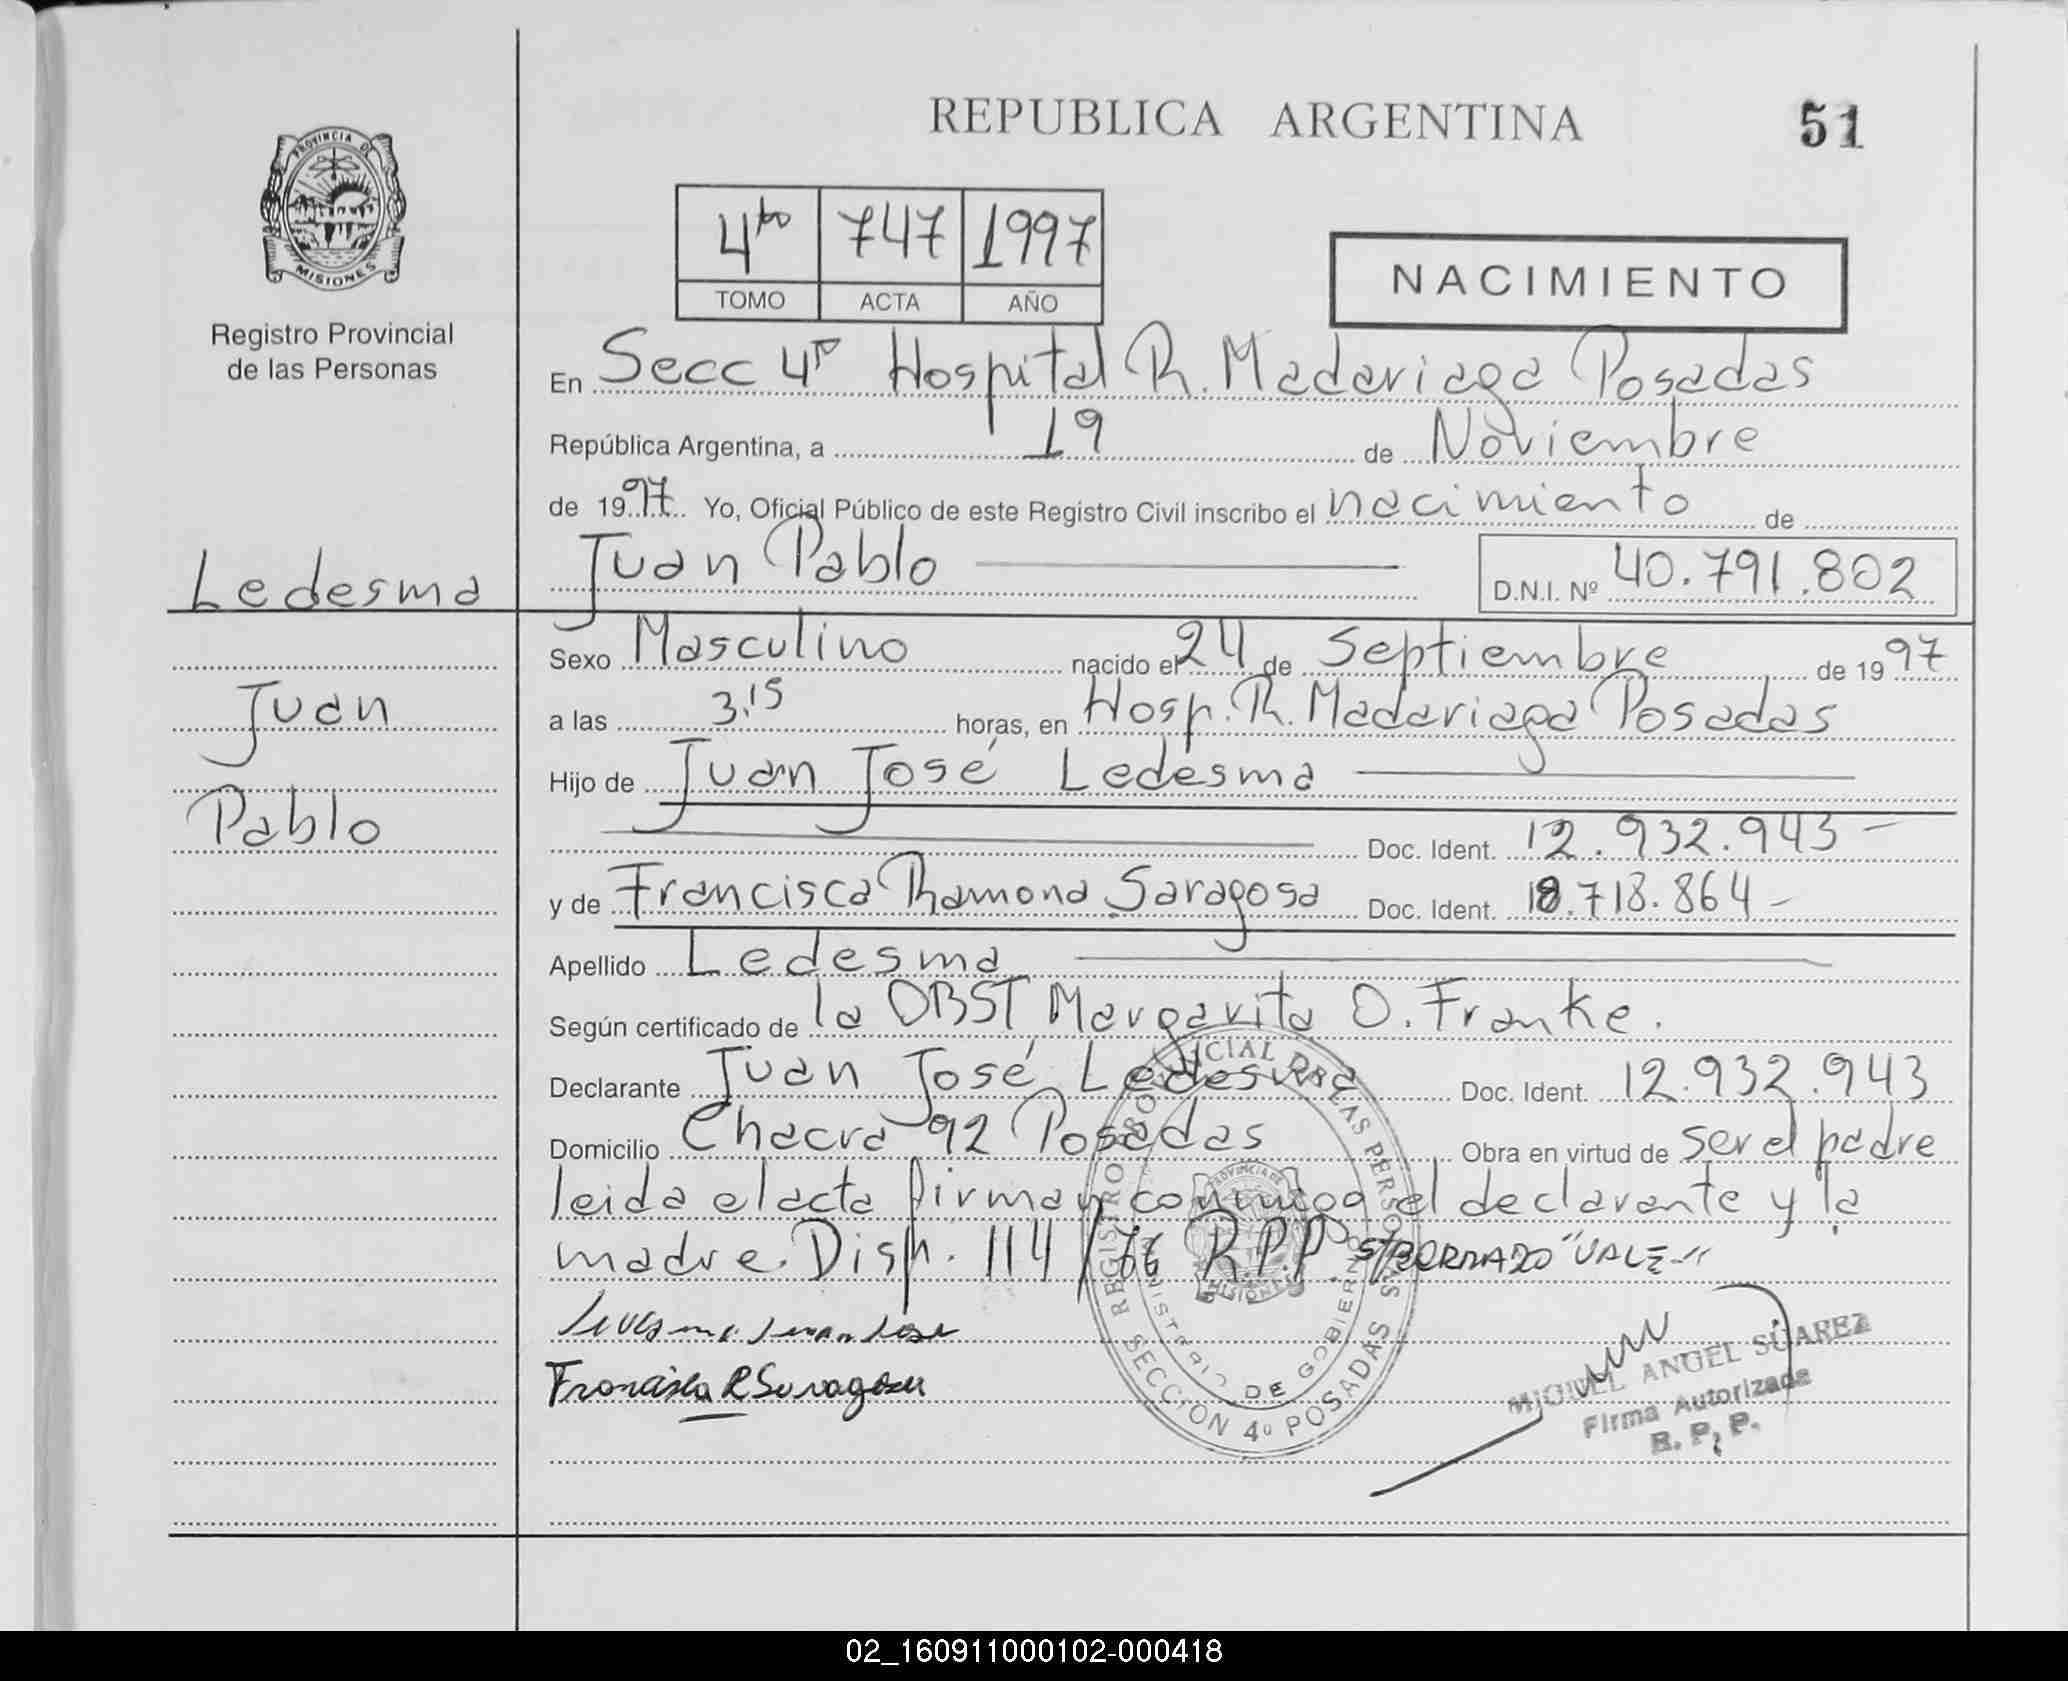 REPUBLICA ARGENTINA
51
PROVINCIA DE
MISIONES
Registro Provincial
de las Personas
4to 747 1997
TOMO ACTA AÑO
NACIMIENTO
En Secc 4ª Hospital R. Madariaga Posadas
República Argentina, a 19 de Noviembre
de 1997 Yo, Oficial Público de este Registro Civil inscribo el nacimiento de
Ledesma
Juan Pablo
D.N.I. Nº 40.791.802
Sexo Masculino nacido el 24 de Septiembre de 1997
Juan
a las 3.15 horas, en Hosp. R. Madariaga Posadas
Hijo de Juan José Ledesma
Pablo
Doc. Ident. 12.932.943-
y de Francisca Ramona Saragosa Doc. Ident. 18.718.864-
Apellido Ledesma
Según certificado de la OBST Margarita O. Franke.
Declarante Juan José Ledesma Doc. Ident. 12.932.943
Domicilio Chacra 92 Posadas Obra en virtud de ser el padre
leida el acta firman conmigo el declarante y la
madre. Disp. 114/76 R.P.P. "VALE"
Francisca R Saragosa
REGISTRO PROVINCIAL DE LAS PERSONAS
MINISTERIO DE GOBIERNO
PROVINCIA DE
MISIONES
SECCION 4º POSADAS
MIGUEL ANGEL SUAREZ
Firma Autorizada
R. P. P.
02_160911000102-000418